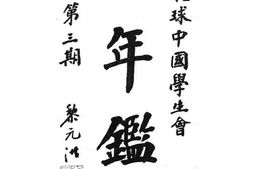 球中國學生會
年鑑
第三期
黎元洪